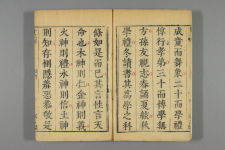 成童而舞象二十而學禮
惇行孝弟三十而博學無
方孫友視志春誦夏絃秋
學禮冬讀書其爲學之科
條如是而已其言性言天
命也木神則仁金神則義
火神則禮水神則信土神
則知存惻隱羞惡恭敬是